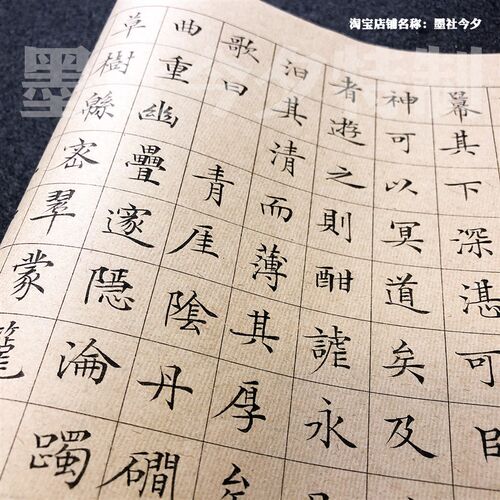 淘宝店铺名称：墨社今夕
冪其下深湛可
神可以冥道矣及
者遊之則酣謔永
汩其清而薄其厚矣
歌曰青厓陰丹磵
曲重幽疊邃隱淪躅
草樹緜宻翠蒙籠